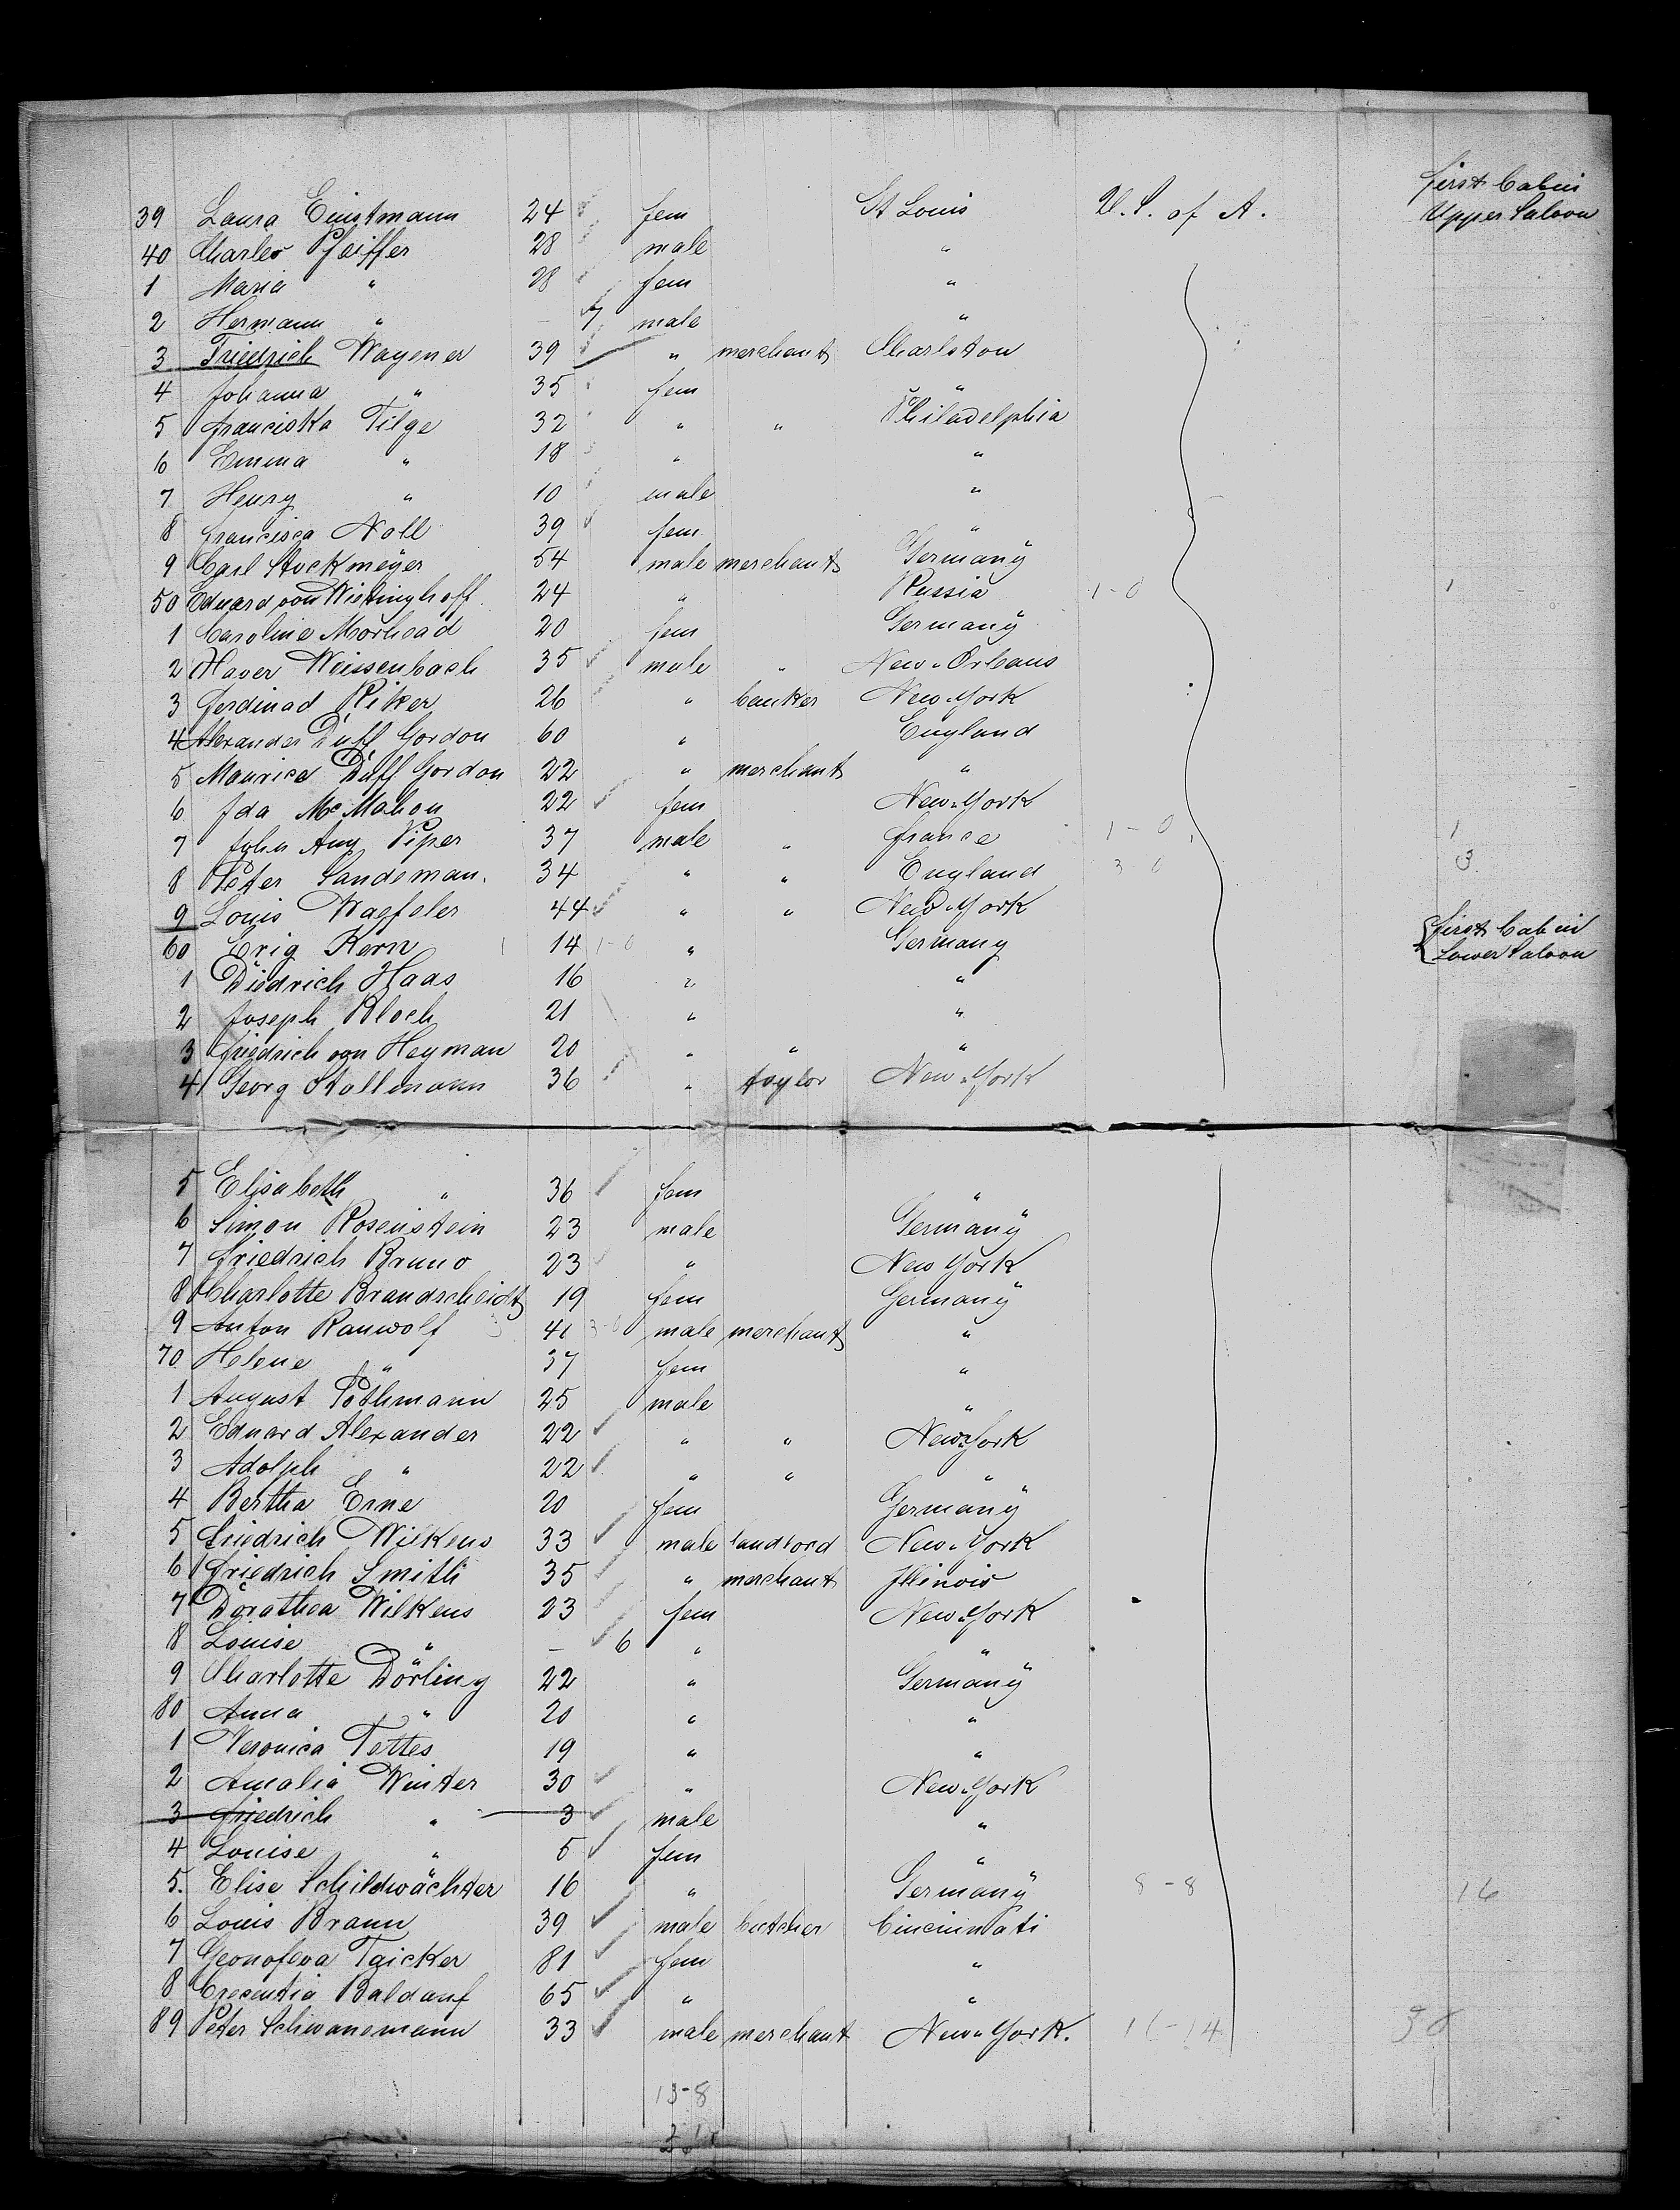 first Cabin
39 Laura Einstmann 24 fem St Louis U. S. of A. Upper Saloon
40 Charles Pfeiffer 28 male "
1 Maria " 28 fem "
2 Hermann " – 7 male "
3 Friedrich Wagener 39 " merchant Charlston
4 Johanna " 35 fem "
5 Franciska Tilge 32 " " Philadelphia
6 Emma " 18 " "
7 Henry " 10 male "
8 Francisca Noll 39 fem "
9 Carl Stockmeyer 54 male merchant Germany
50 Eduard von Wietinghoff 24 " Russia 1-0 1
1 Caroline Morhead 20 fem Germany
2 Xaver Weissenbach 35 male " New-Orleans
3 Ferdinad Riker 26 " banker New-York
4 Alexander Duff Gordon 60 " England
5 Maurice Duff Gordon 22 " merchant "
6 Ida McMahon 22 fem New-York
7 John Aug Piper 37 male " France 1-0 1
8 Peter Sandeman. 34 " " England 3 0 3
9 Louis Waefeler 44 " " New-York
60 Erig Kern 14 1-0 " Germany first Cabin
1 Diedrich Haas 16 " " Lower Saloon
2 Joseph Bloch 21 " "
3 Friedrich von Heyman 20 " " "
4 Georg Stallmann 36 " taylor New-York
5 Elisabeth " 36 fem "
6 Simon Rosenstein 23 male Germany
7 Friedrich Bruno 23 " New York
8 Charlotte Brandscheidt 19 fem Germany
9 Anton Rauwolf 41 3-0 male merchant "
70 Helene " 37 fem "
1 August Pothmann 25 male "
2 Eduard Alexander 22 " " New-York
3 Adolph " 22 " " "
4 Bertha Erne 20 fem Germany
5 Friedrich Wilkens 33 male landlord New-York
6 Friedrich Smith 35 " merchant Illinois
7 Dorathea Wilkens 23 fem New-York
8 Louise " – 6 " "
9 Charlotte Dörling 22 " Germany
80 Anna " 20 " "
1 Veronica Tettes 19 " "
2 Amalia Winter 30 " New-York
3 Friedrich " 3 male "
4 Louise " 5 fem "
5. Elise Schildwächter 16 " Germany 8-8 16
6 Louis Braun 39 male butcher Cincinnati
7 Genofeva Taicker 81 fem "
8 Crecentia Baldauf 65 " "
89 Peter Schwanemann 33 male merchant New-York. 16-14 30
13-8